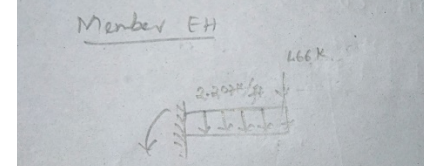 Member EH
1.66 K
2.207 k/ft